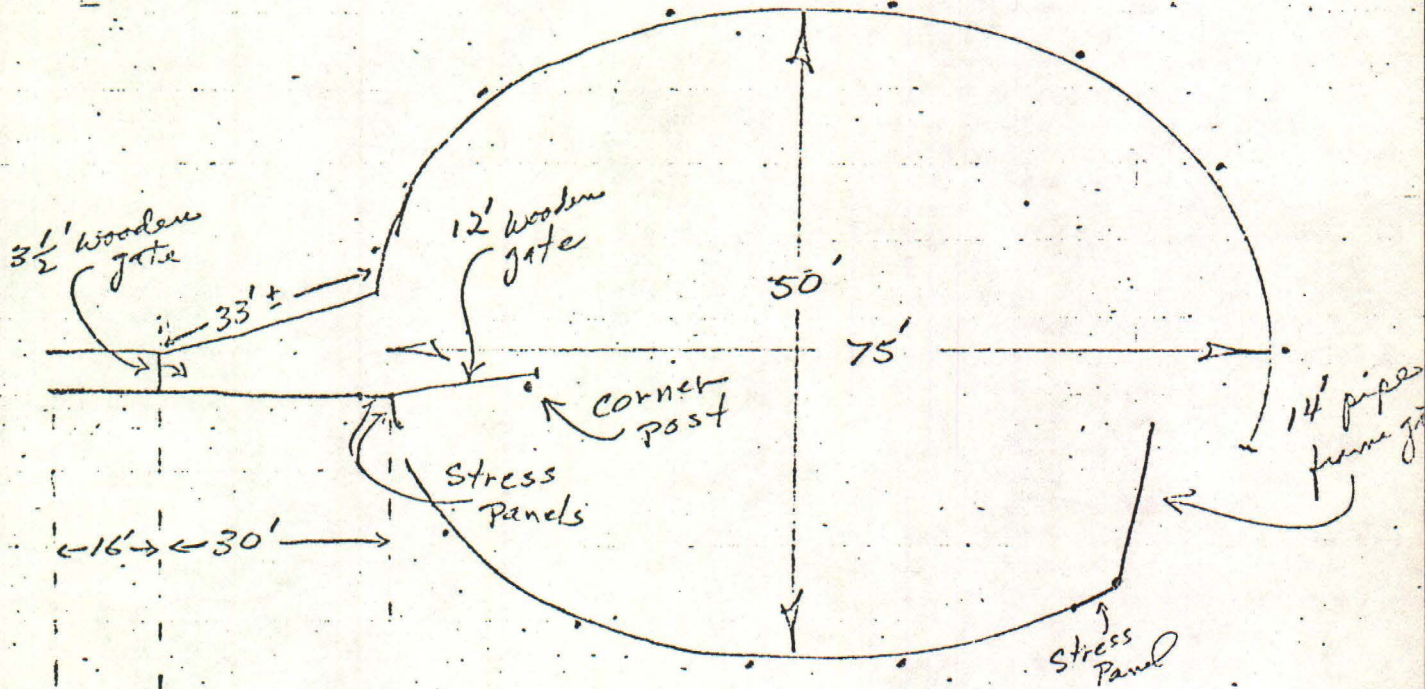 3 1/2' wooden
gate
33' ±
12' wooden
gate
50'
75'
corner
post
14' pipe
frame
Stress
Panels
16'
30'
Stress
Panel